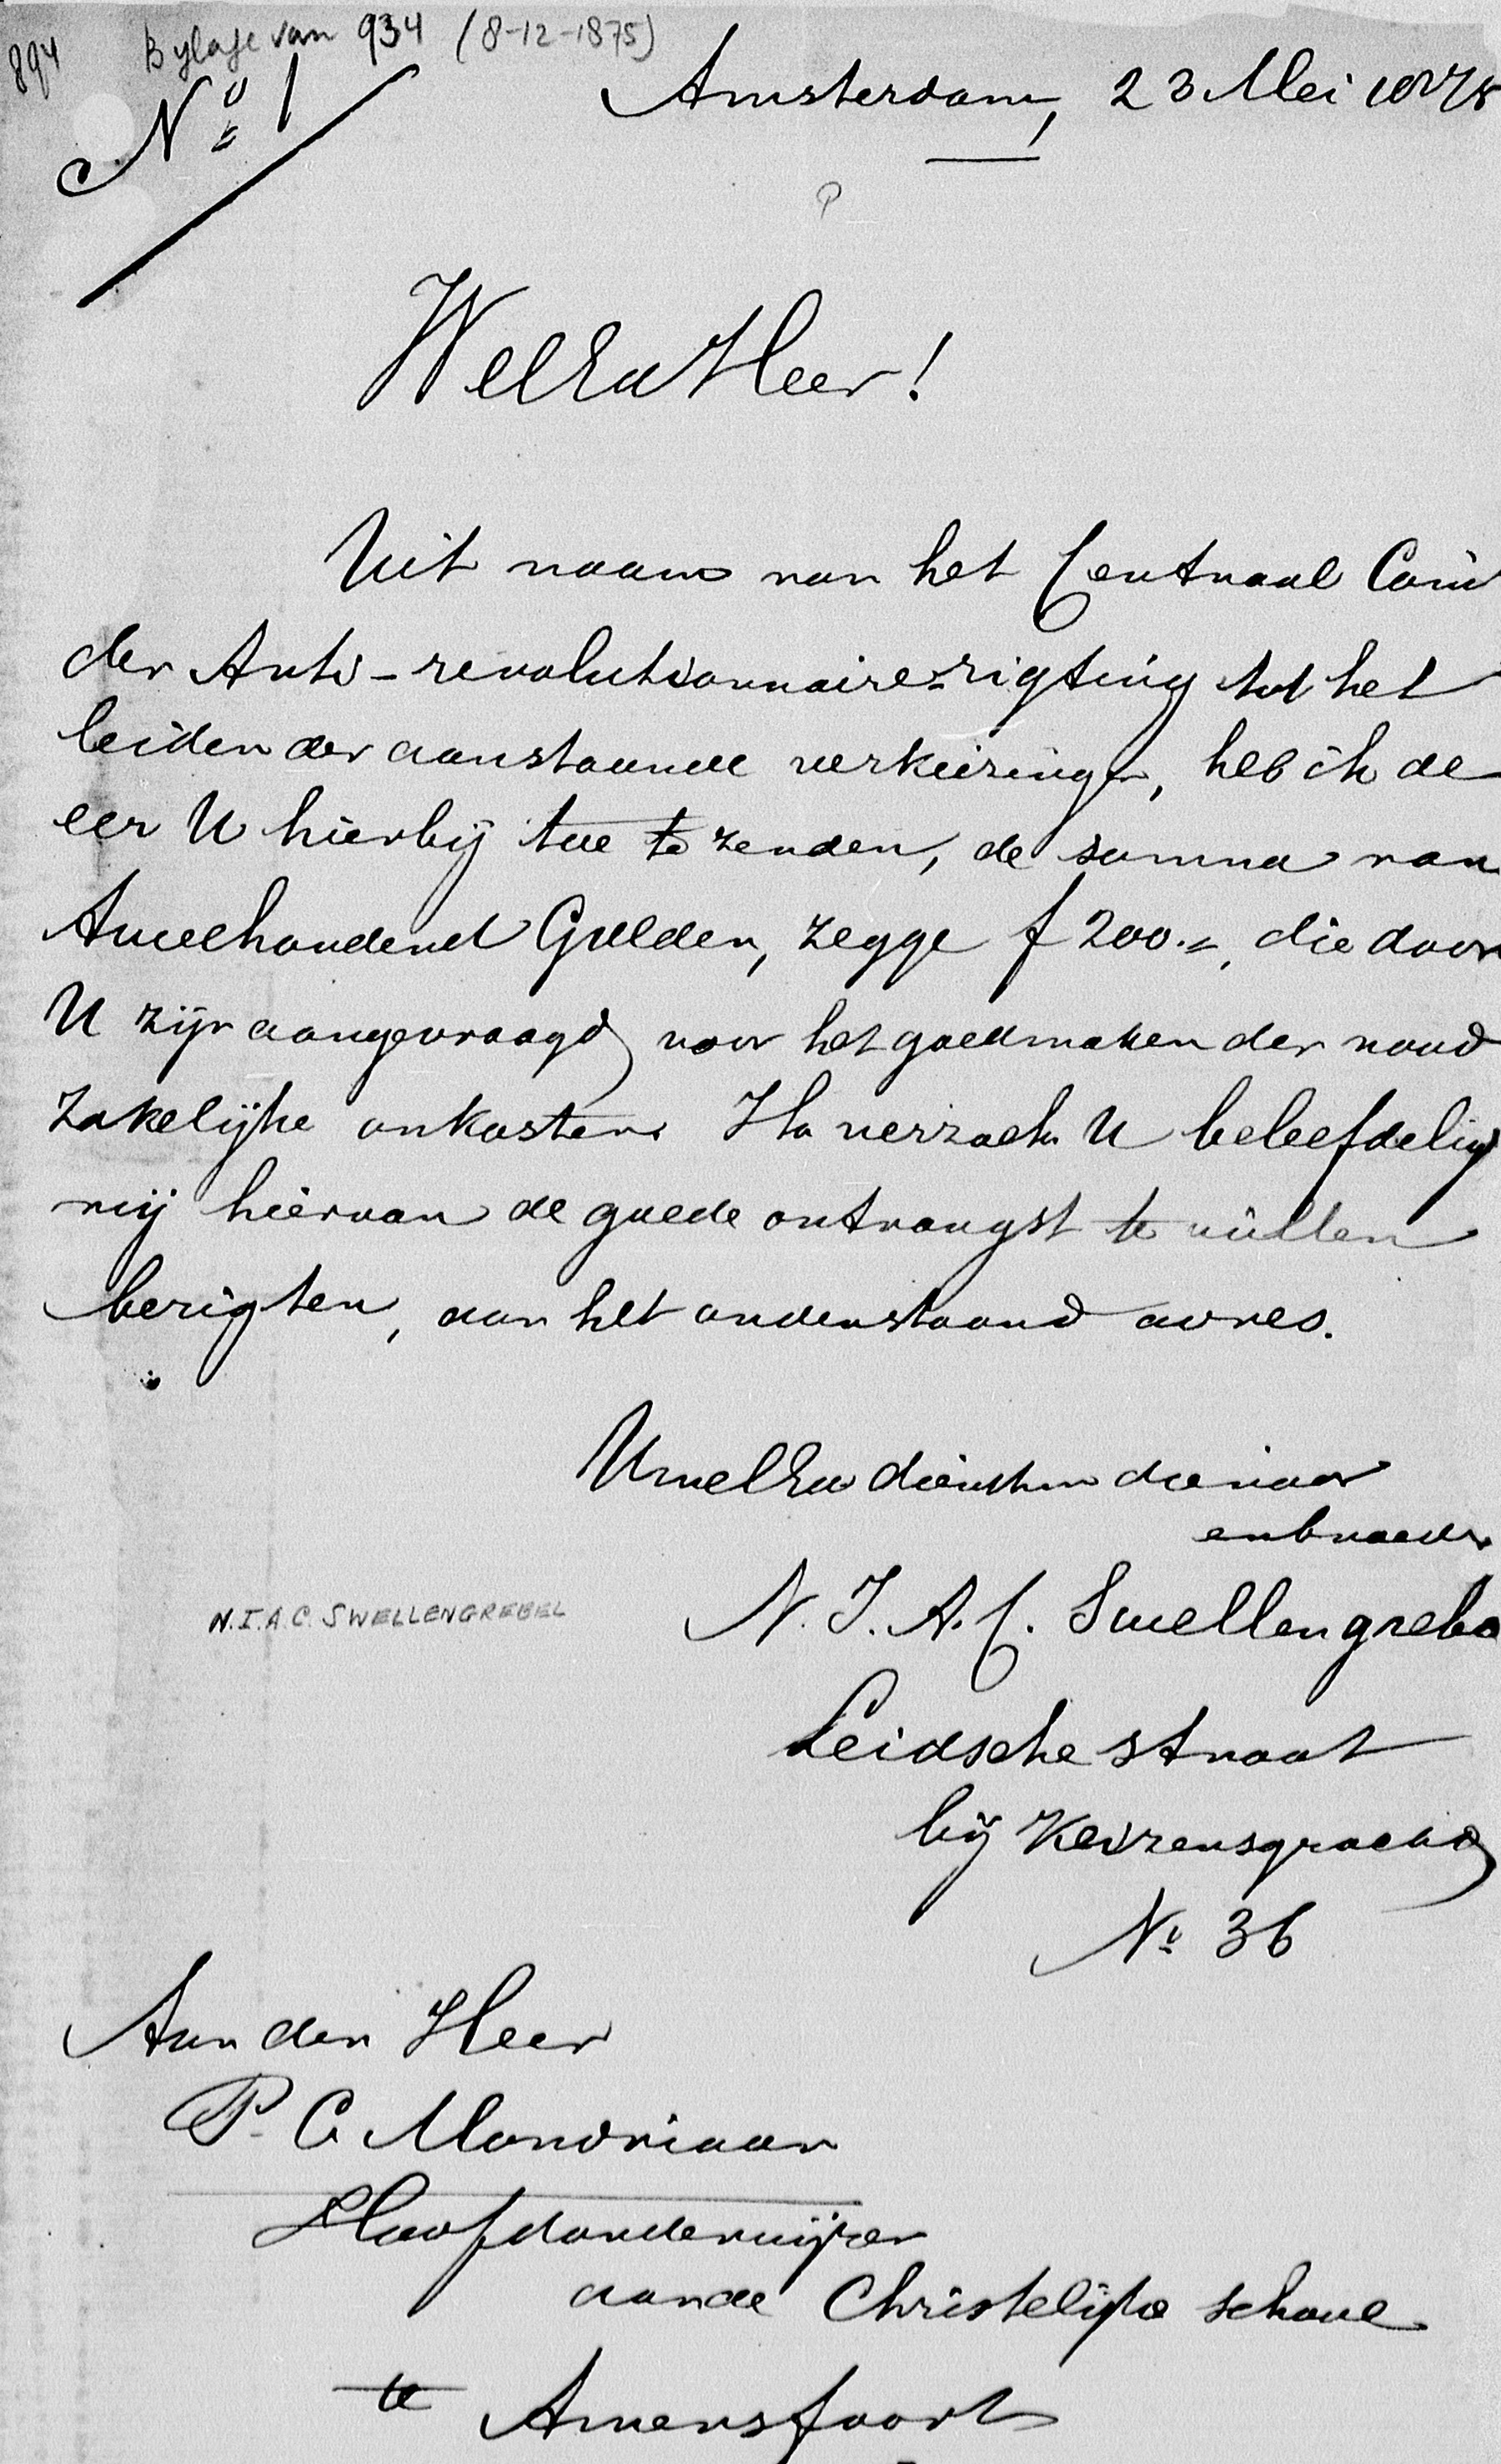 894 Bylage van 934 (8-12-1875)
No 1
Amsterdam, 23 Mei 1875
WelEd Heer!
Uit naam van het Centraal Comi
der Anti-revolutionnaire-rigting tot het
leiden der aanstaande verkiezingen, heb ik de
eer U hierbij toe te zenden, de somma van
Tweehonderd Gulden, zegge f 200.-, die door
U zijn aangevraagd voor het goedmaken der nood
zakelijke onkosten. Ik verzoek U beleefdelijk
mij hiervan de goede ontvangst te willen
berigten, aan het onderstaand adres.
UwelEd dienstw dienaar
en broeder
N. I. A. C. Swellengrebel
N.I.A.C. SWELLENGREBEL
Leidsche straat
bij Keizersgracht
No 36
Aan den Heer
P. C. Mondriaan
Hoofdonderwijzer
aan de Christelijke school
te Amersfoort